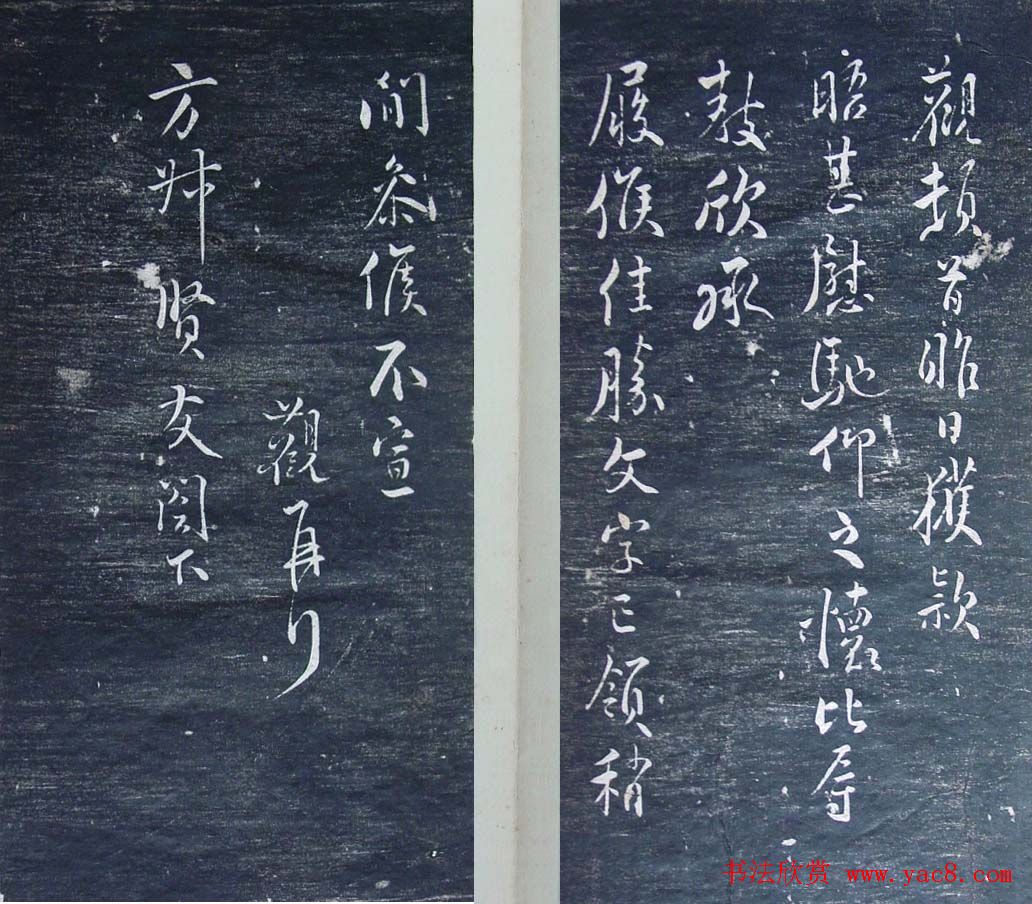 觀頓首昨日獲款
晤甚慰馳仰之懷比辱
教欣承
履候佳勝文字已領稍
間參候不宣
觀再行
方叔賢友閣下
书法欣赏 www.yac8.com